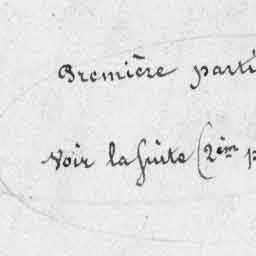 Première parti
Voir la suite (2èm p